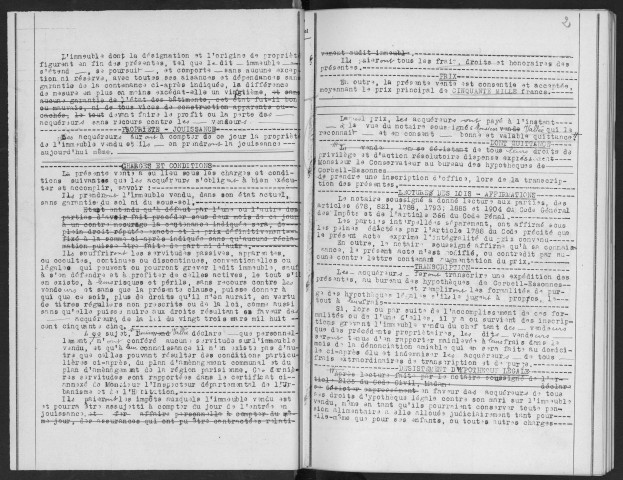 L'immeuble dont la désignation et l'origine de propriété
figurent en fin des présentes, tel que le dit immeuble
s'étend, se poursuit, et comporte sans aucune excep-
tion ni réserve, avec toutes ses aisances et dépendances sans
garantie de la contenance ci-après indiquée, la différence
de mesure en plus ou moins excédât-elle un vingtième, et sans
aucune garantie de l'état des bâtiments, cet état fut-il bon
ou mauvais, ni de tous vices de construction apparents ou
cachés, le tout devant faire le profit ou la perte des
acquéreurs sans recours contre les vendeurs
PROPRIETE - JOUISSANCE
Les acquéreurs auront à compter de ce jour la propriété
de l'immeuble vendu et ils en prendront la jouissance
aujourd'hui même.
CHARGES ET CONDITIONS
La présente vente a eu lieu sous les charges et condi-
tions suivantes que les acquéreurs s'obligent à bien exécu-
ter et accomplir, savoir :
Ils prendront l'immeuble vendu, dans son état actuel,
sans garantie du sol ni du sous-sol.
Ils souffriront les servitudes passives, apparentes,
ou occultes, continues ou discontinues, conventionnelles ou
légales qui peuvent ou pourront grever ledit immeuble, sauf
à s'en défendre et à profiter de celles actives, le tout s'il
en existe, à leurs risques et périls, sans recours contre les
vendeurs et sans que la présente clause, puisse donner à
qui que ce soit, plus de droits qu'il n'en aurait, en vertu
de titres réguliers non prescrits ou de la loi, comme aussi
sans qu'elle puisse nuire aux droits résultant en faveur des
acquéreurs, de la loi du vingt trois mars mil huit
cent cinquante cinq.
A ce sujet, déclare que personnel-
lement / n'ont conféré aucune servitude sur l'immeuble
vendu, et qu'à leur connaissance il n'en existe pas d'au-
tre que celles pouvant résulter des conditions particu-
lières ci-après, du plan d'aménagement communal et du
plan d'aménagement de la région parisienne, Ces derniè-
res servitudes sont rapportées dans le certificat ci-
annexé de Monsieur l'Inspecteur départemental de l'Ur-
banisme et de l'Habitation.
Ils paieront les impôts auxquels l'immeuble vendu est
et pourra être assujetti à compter du jour de l'entrée en
jouissance
2
vement audit immeuble.
Ils paieront tous les frais, droits et honoraires des
présentes.
PRIX
En outre, la présente vente est consentie et acceptée,
moyennant le prix principal de CINQUANTE MILLE francs.
Lequel prix, les acquéreurs ont payé à l'instant
à la vue du notaire soussigné qui le
reconnait et en consent bonne et valable quittance
DONT QUITTANCE
de tous droits de
privilège et d'action résolutoire dispense expressément
Monsieur le Conservateur au bureau des hypothèques de
Corbeil-Essonnes
de prendre une inscription d'office, lors de la transcrip-
tion des présentes.
LECTURE DES LOIS - AFFIRMATIONS
Le notaire soussigné a donné lecture aux parties, des
articles 678, 681, 1786, 1793, 1885 et 1904 du Code Général
des Impôts et de l'article 366 du Code Pénal.
Les parties interpellées séparément, ont affirmé sous
les peines édictées par l'article 1786 du Code précité que
le présent acte exprime l'intégralité du prix convenu
En outre, le notaire soussigné affirme qu'à sa connais-
sance, le présent acte n'est modifié, ou contredit par au-
cune contre lettre contenant augmentation du prix.
TRANSCRIPTION
Les acquéreurs feront transcrire une expédition des
présentes, au bureau des hypothèques de Corbeil-Essonnes
et rempliront les formalités de pur-
ge des hypothèques légales s'ils le jugent à propos, le
tout à leurs frais.
Si, lors ou par suite de l'accomplissement de ces for-
malités ou de l'une d'elles, il y a ou survient des inscrip-
tions grevant l'immeuble vendu du chef tant des vendeurs
que des précédents propriétaires, les dits vendeurs
seront tenus d'en rapporter mainlevée à leurs frais dans le
mois de la dénonciation amiable qui en sera faite au domici-
le ci-après élu et indemniser les acquéreurs de tous
frais extraordinaires de transcription et de purge.
DESISTEMENT D'HYPOTHEQUE LEGALE
en faveur des acquéreurs de tous
ses droits d'hypothèque légale contre son mari sur l'immeuble
vendu, même en tant qu'ils pourraient conserver toute pen-
sion alimentaire à elle allouée judiciairement tant pour
elle-même que pour ses enfants, ou toutes autres charges